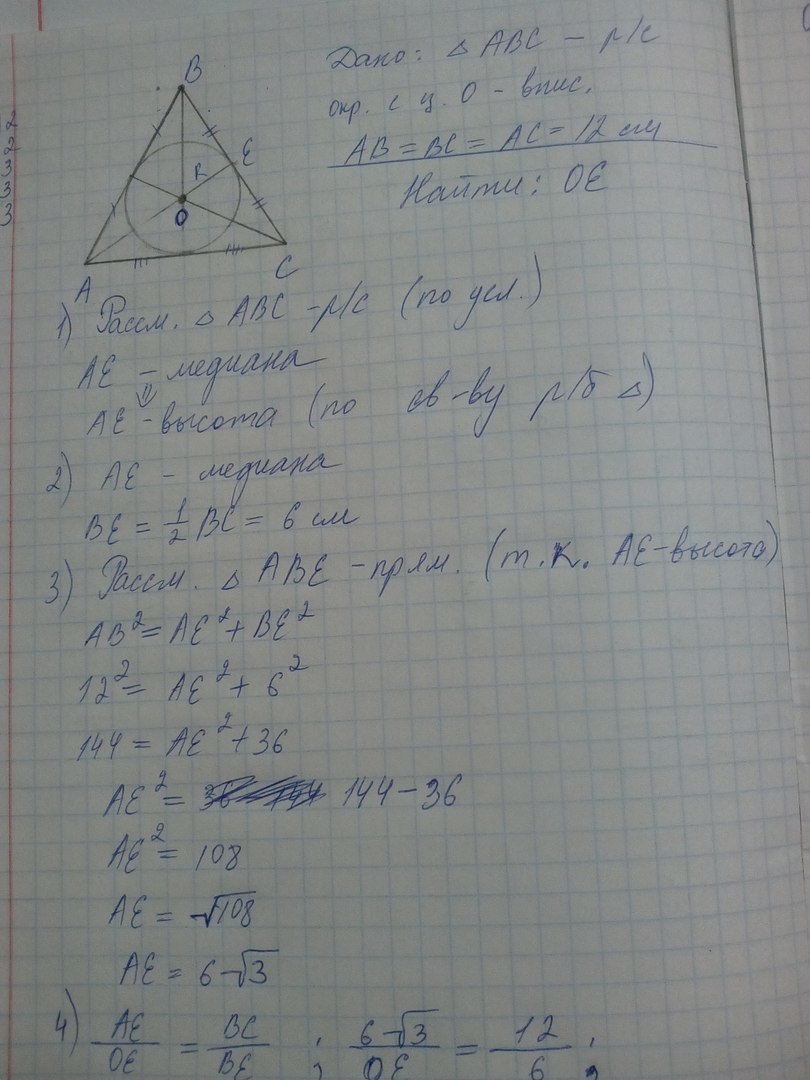 B
E
R
O
A
C
Дано: △ ABC – р/с
окр. с ц. O – впис.
AB = BC = AC = 12 см
Найти: OE
1) Рассм. △ ABC – р/с (по усл.)
AE – медиана
⇓
AE – высота (по св-ву р/б △)
2) AE – медиана
BE = 1/2 BC = 6 см
3) Рассм. △ ABE – прям. (т.к. AE – высота)
AB² = AE² + BE²
12² = AE² + 6²
144 = AE² + 36
AE² = 144 – 36
AE² = 108
AE = √108
AE = 6√3
4) AE/OE = BC/BE ; 6√3/OE = 12/6 ;
2
2
3
3
3